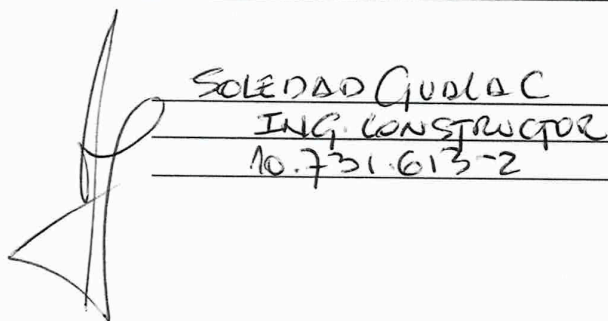 SOLEDAD GUALA C
ING. CONSTRUCTOR
10.731.613-2